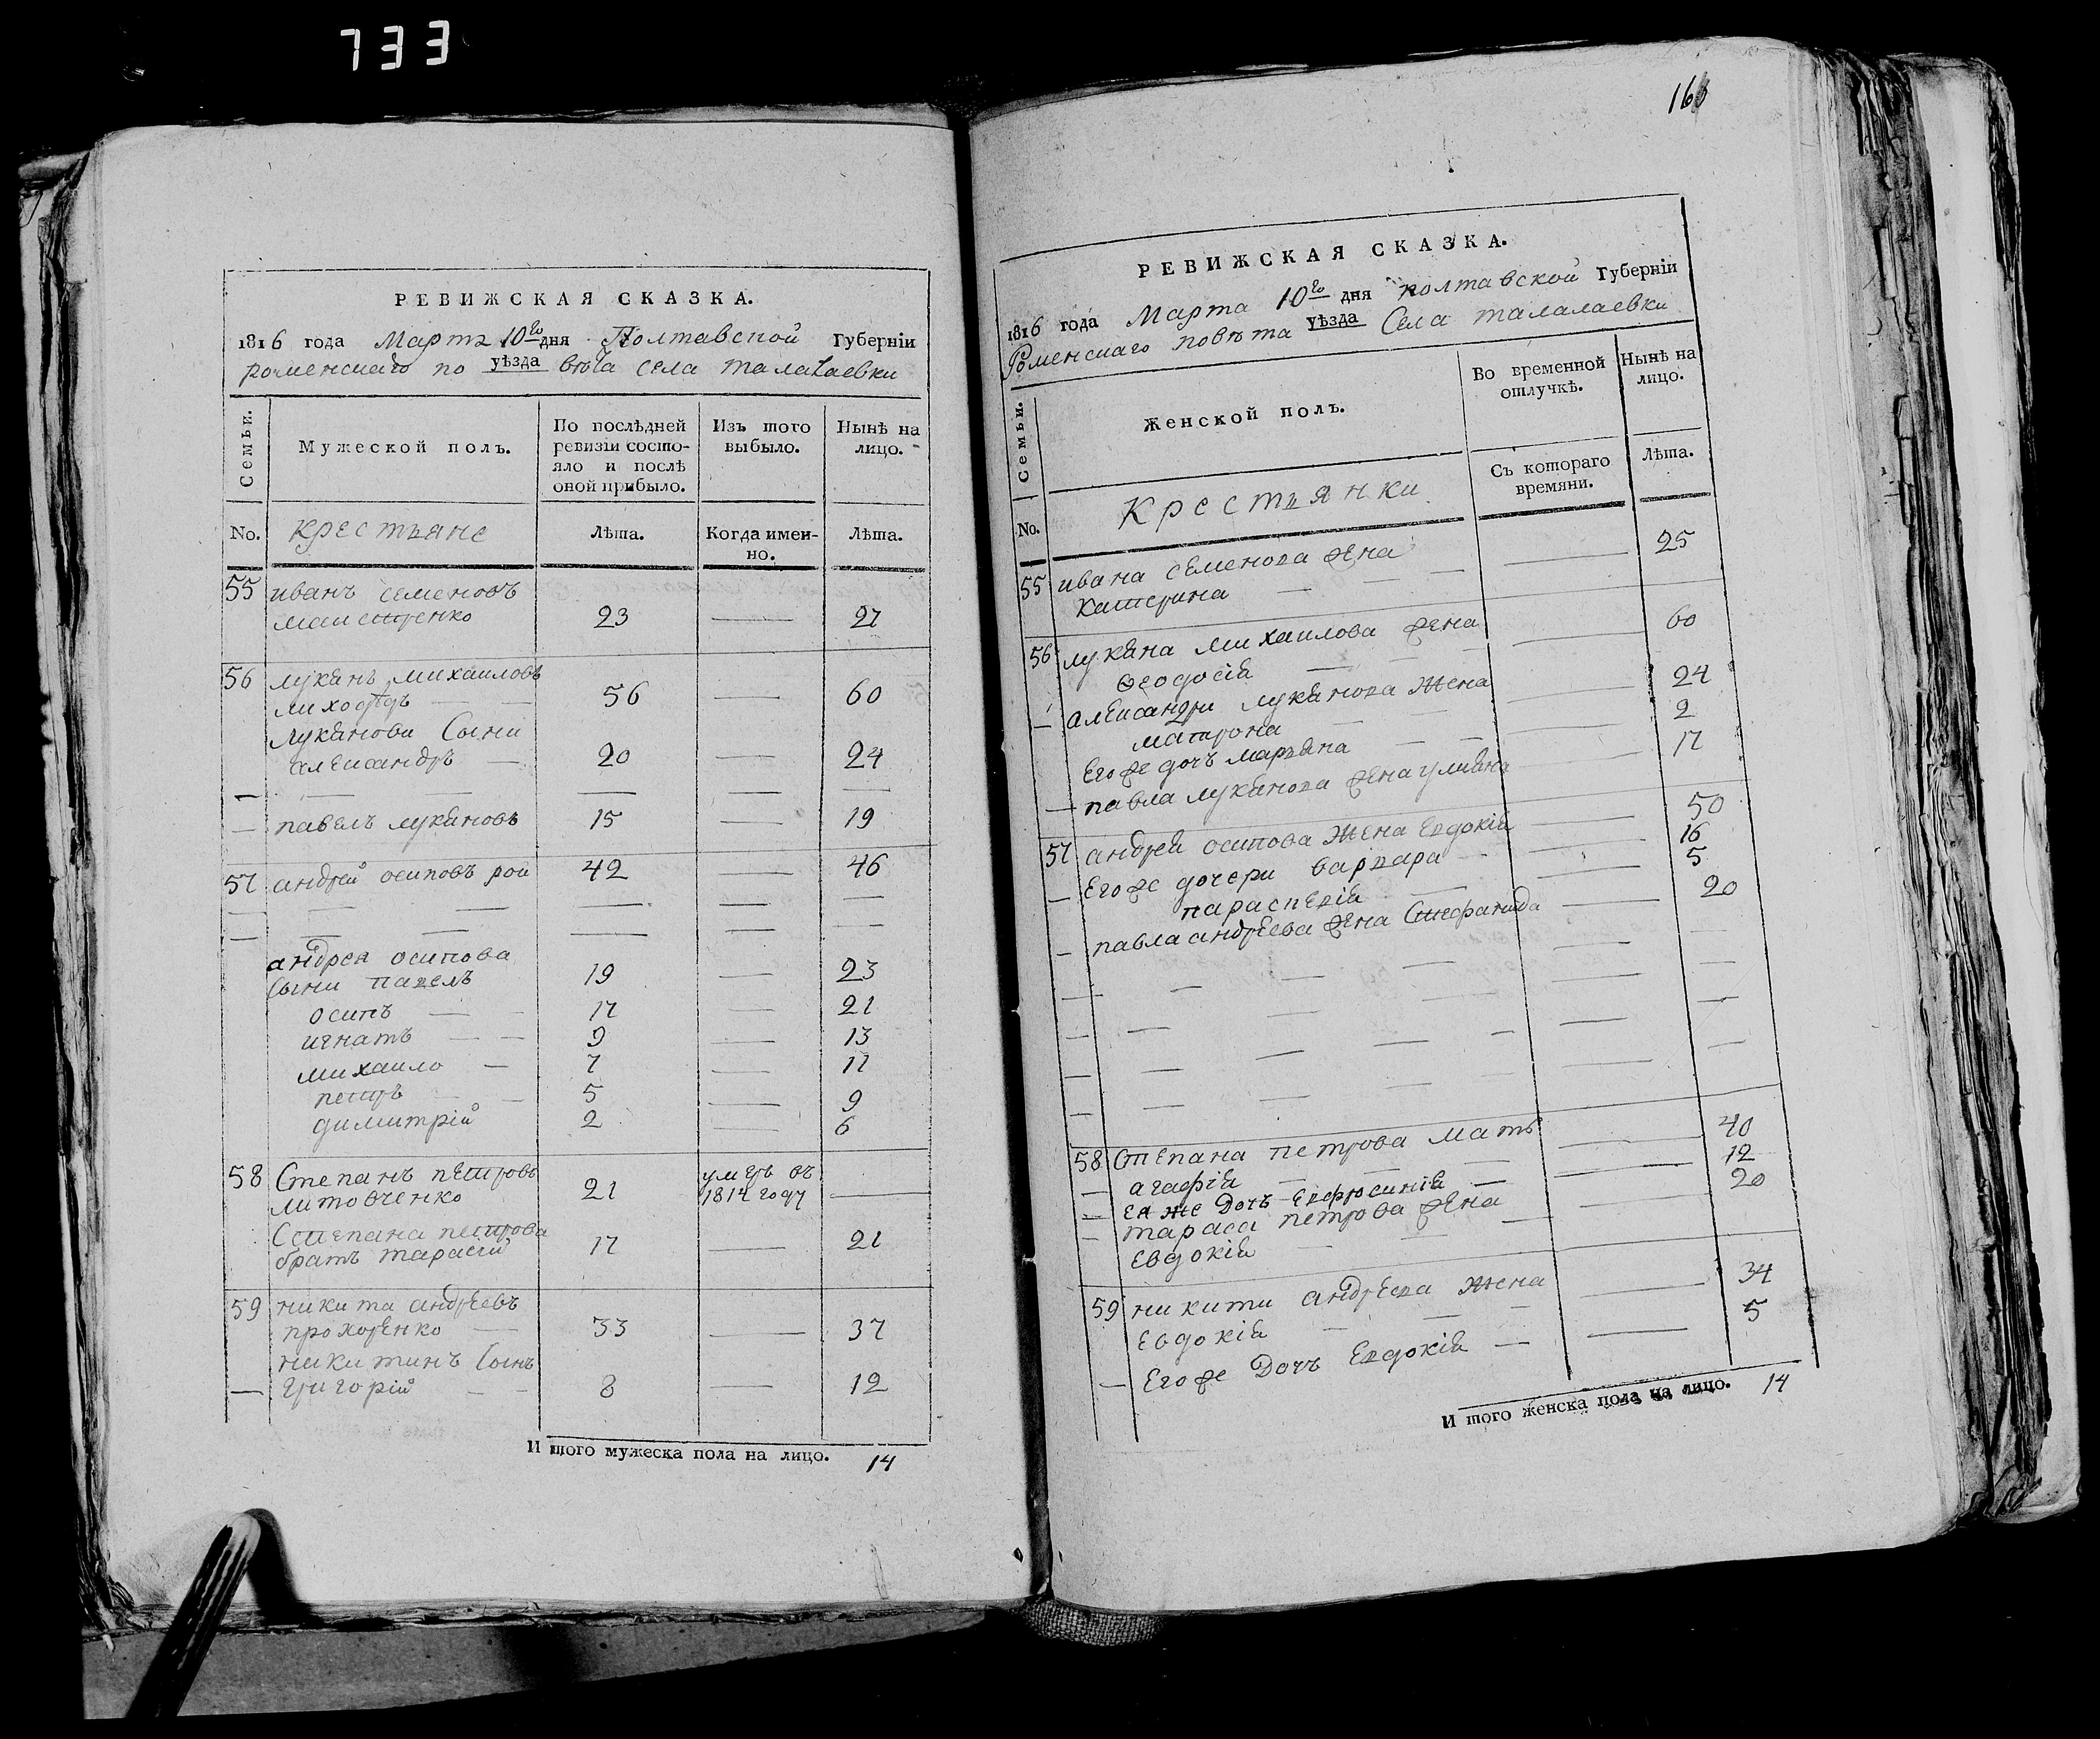 733
РЕВИЖСКАЯ СКАЗКА.
1816 года Марта 10го дня Полтавской Губерніи
роменского по уѣзда вѣта села талалаевки
Семьи.
Мужеской полъ.
По послѣдней ревизіи состо-
яло и послѣ
оной прибыло.
Изъ того
выбыло.
Нынѣ на
лицо.
No. крестьяне Лѣта. Когда имен-
но. Лѣта.
55 иванъ семеновъ
23 27
56 луканъ михаиловъ
56 60
лукянови Сыни
александръ 20 24
павелъ лукяновъ 15 19
57 андрей осиповъ рой 42 46
андрея осипова
Сыни павелъ 19 23
осипъ 17 21
игнатъ 9 13
михаило 7 11
петръ 5 9
димитрій 2 6
58 Степанъ петровъ умеръ въ
литовченко 21 1814 году
Степана петрова
братъ тарасій 17 21
59 никита андреевъ
прохоренко 33 37
никитинъ Сынъ
григорій 8 12
И того мужеска пола на лицо. 14
РЕВИЖСКАЯ СКАЗКА.
1816 года Марта 10го дня полтавской Губерніи
Роменского повѣта уѣзда Села талалаевки
Семьи.
Женской полъ.
Во временной
отлучкѣ.
Нынѣ на
лицо.
Съ котораго
времяни.
Лѣта.
No. Крестьянки
55 ивана семенова жена 25
катерина
56 лукяна михаилова жена 60
Ѳеодосія
александри лукянова жена 24
матрона
Его же дочъ маръяна 2
павла лукянова жена улияна 17
57 андрея осипова жена Евдокія 50
Его же дочери варвара 16
параскевія 5
павла андреева жена Стефанида 20
58 Степана петрова мать 40
агафія
Ея же Дочъ Евфросинія 12
тараса петрова жена 20
Евдокія
59 никити андреева жена 34
Евдокія
Его же Дочъ Евдокія 5
И того женска пола на лицо. 14